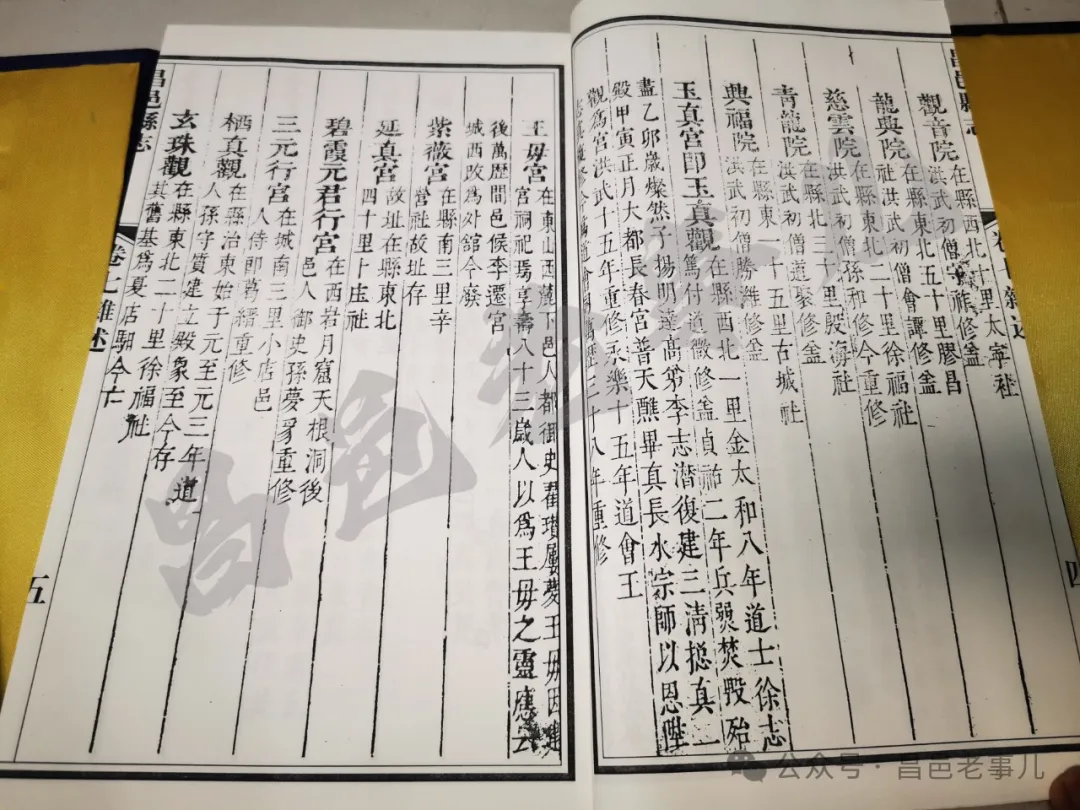 昌邑縣志 卷七雜述 四
觀音院 在縣西北十里太寧社
洪武初僧宗 修葺
龍興院 在縣東北五十里膠昌
社洪武初僧會譚修葺
慈雲院 在縣東北二十里徐福社
洪武初僧孫和修今重修
青龍院 在縣北三十里殷海社
洪武初僧道聚修葺
興福院 在縣東一十五里古城社
洪武初僧勝濰修葺
玉真宮即玉真觀 在縣西北一里金太和八年道士徐志
篤付道徵修葺貞祐二年兵燹焚毀殆
盡乙卯歲燦然子揚明達高弟李志潛復建三清摠真一
殿甲寅正月大都長春宮普天醮畢真長水宗師以恩陞
觀為宮洪武十五年重修永樂十五年道會王
志真重修今為道會司萬曆三十八年重修
王母宮 在東山西麓下邑人都御史翟瓚屢夢王母因建
宮祠祀焉享壽八十三歲人以爲王母之靈應云
後萬歷間邑候李遷宮
城西改爲外舘今廢
紫薇宮 在縣南三里辛
營社故址存
延真宮 故址在縣東北
四十里卜庒社
碧霞元君行宮 在西岩月窟天根洞後
邑人御史孫夢豸重修
三元行宮 在城南三里小店邑
人侍郎葛縉重修
栖真觀 在縣治東始于元至元三年道
人孫守質建立殿象至今存
玄珠觀 在縣東北二十里徐福社
其舊基爲夏店馹今亡
昌邑縣志 卷七雜述 五
昌邑老事儿
公众号·昌邑老事儿